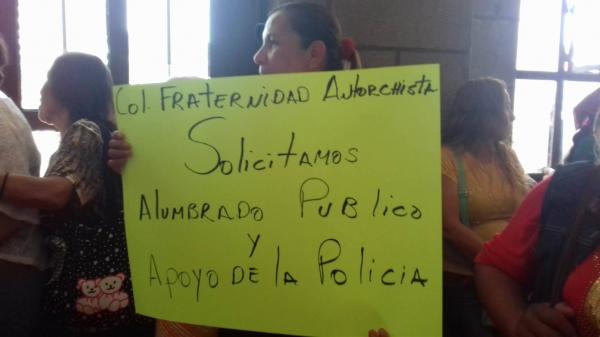 Col. FRATERNIDAD ANTORCHISTA
SOLICITAMOS
ALUMBRADO PUBlico
Y
APOYO DE LA POLICIA